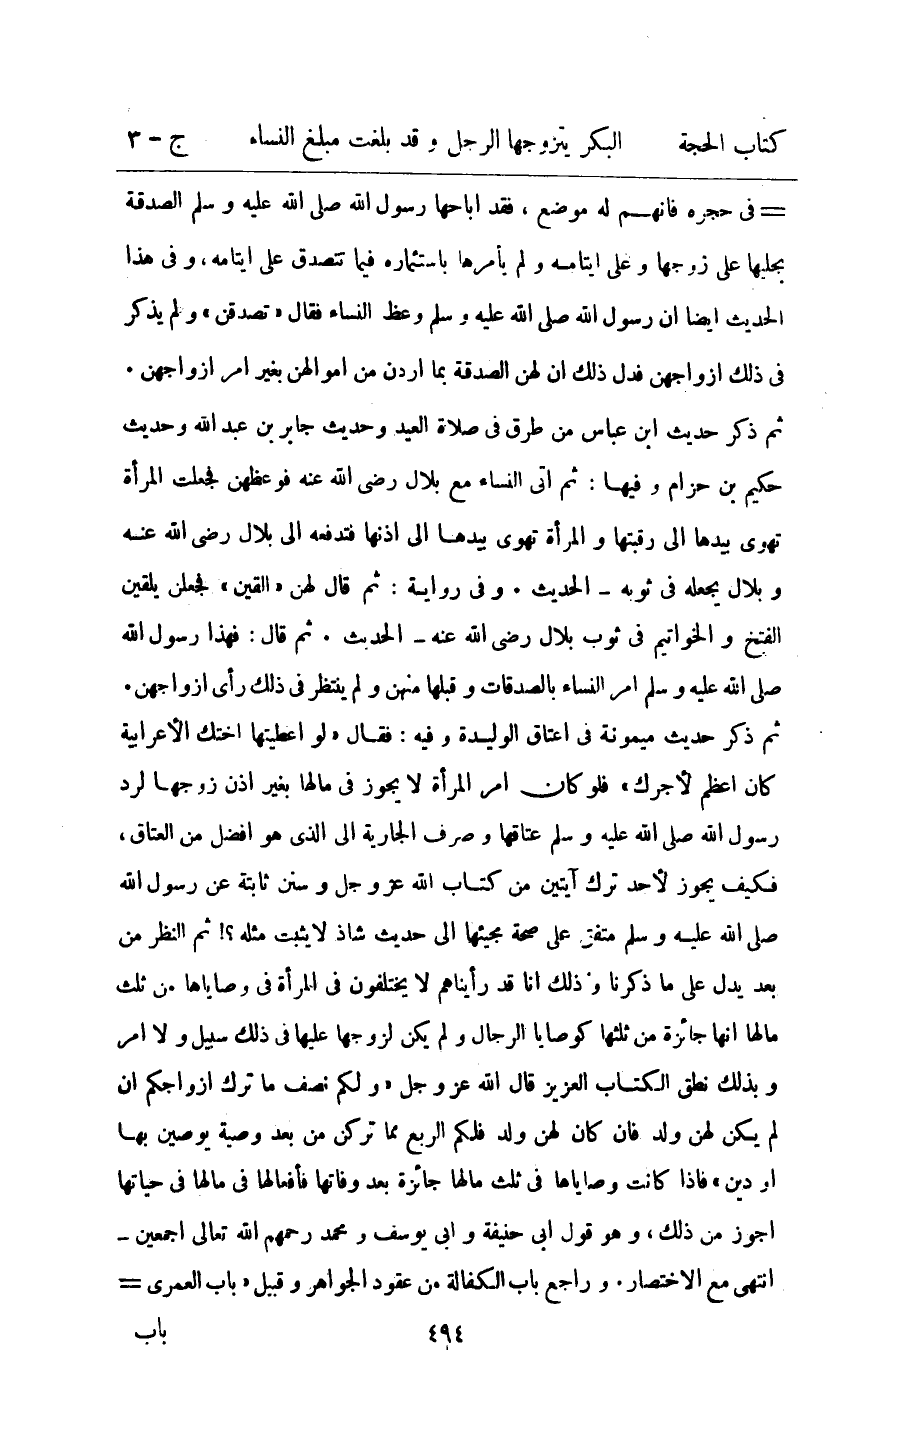 كتاب الحجة البكر يتزوجها الرجل و قد بلغت مبلغ النساء ج - ٣
= فى حجره فانهم له موضع ، فقد اباحها رسول الله صلى الله عليه و سلم الصدقة
بحليها على زوجها و على ايتامه و لم يأمرها باستئماره فيما تتصدق على ايتامه ، و فى هذا
الحديث ايضا ان رسول الله صلى الله عليه و سلم وعظ النساء فقال « تصدقن » و لم يذكر
فى ذلك ازواجهن فدل ذلك ان لهن الصدقة بما اردن من اموالهن بغير امر ازواجهن .
ثم ذكر حديث ابن عباس من طرق فى صلاة العيد وحديث جابر بن عبد الله وحديث
حكيم بن حزام و فيها : ثم اتى النساء مع بلال رضى الله عنه فوعظهن فجعلت المرأة
تهوى بيدها الى رقبتها و المرأة تهوى بيدها الى اذنها فتدفعه الى بلال رضى الله عنه
و بلال يجعله فى ثوبه - الحديث . و فى رواية : ثم قال لهن « القين » فجعلن يلقين
الفتخ و الخواتيم فى ثوب بلال رضى الله عنه - الحديث . ثم قال : فهذا رسول الله
صلى الله عليه و سلم امر النساء بالصدقات و قبلها منهن و لم ينتظر فى ذلك رأى ازواجهن .
ثم ذكر حديث ميمونة فى اعتاق الوليدة و فيه : فقال « لو اعطيتها اختك الأعرابية
كان اعظم لأجرك » فلو كان امر المرأة لا يجوز فى مالها بغير اذن زوجها لرد
رسول الله صلى الله عليه و سلم عتاقها و صرف الجارية الى الذى هو افضل من العتاق ،
فكيف يجوز لأحد ترك آيتين من كتاب الله عز و جل و سنن ثابتة عن رسول الله
صلى الله عليه و سلم متفق على صحة مجيئها الى حديث شاذ لا يثبت مثله ؟! ثم النظر من
بعد يدل على ما ذكرنا و ذلك انا قد رأيناهم لا يختلفون فى المرأة فى وصاياها من ثلث
مالها انها جائزة من ثلثها كوصايا الرجال و لم يكن لزوجها عليها فى ذلك سبيل و لا امر
و بذلك نطق الكتاب العزيز قال الله عز و جل « و لكم نصف ما ترك ازواجكم ان
لم يكن لهن ولد فان كان لهن ولد فلكم الربع مما تركن من بعد وصية يوصين بها
او دين » فاذا كانت وصاياها فى ثلث مالها جائزة بعد وفاتها فأفعالها فى مالها فى حياتها
اجوز من ذلك ، و هو قول ابى حنيفة و ابى يوسف و محمد رحمهم الله تعالى اجمعين -
انتهى مع الاختصار . و راجع باب الكفالة من عقود الجواهر و قبل « باب العمرى =
٤٩٤ باب